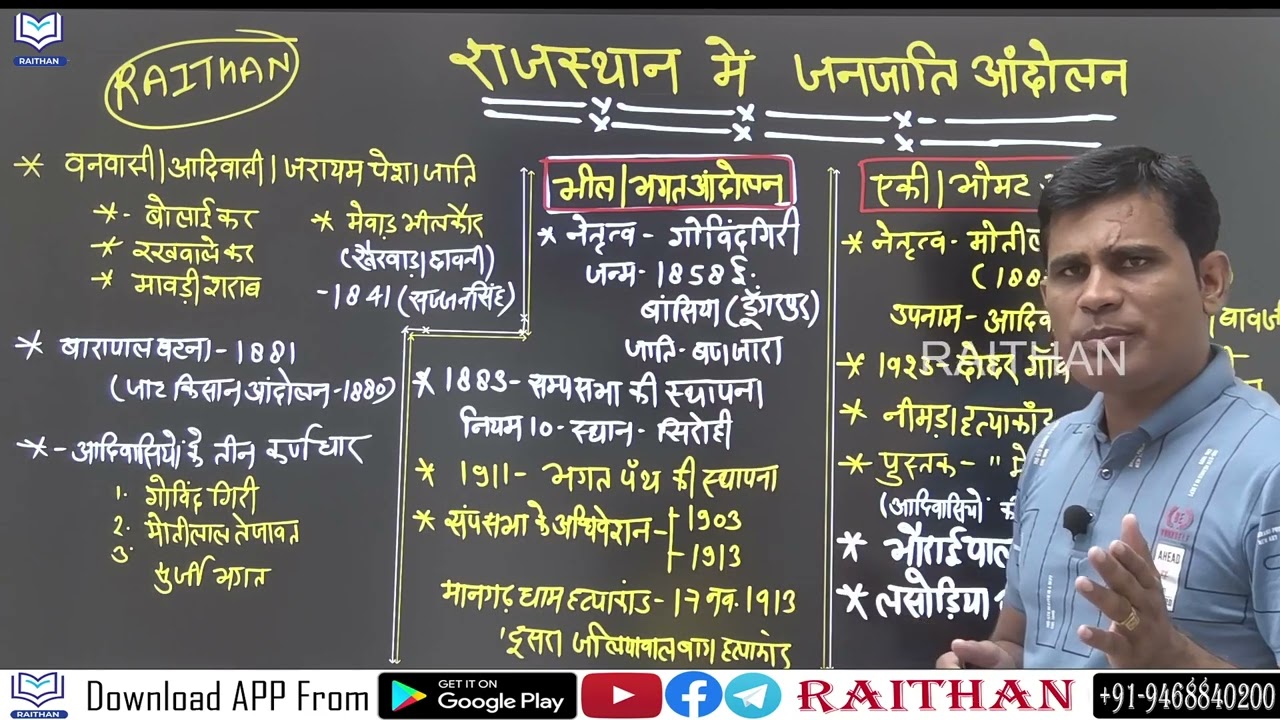 RAITHAN
RAITHAN
राजस्थान में जनजाति आंदोलन
* वनवासी|आदिवासी|जरायम पेशा जाति
* - बोलाई कर
* रखवाले कर
* मावड़ी शराब
* मेवाड़ भीलकौर
(खैरवाड़ा छावनी)
- 1841 (सज्जनसिंह)
* बारापाल घटना - 1881
(जाट किसान आंदोलन - 1880)
* - आदिवासियों के तीन कर्णधार
1. गोविंद गिरी
2. मोतीलाल तेजावत
3. सुर्जी भगत
भील|भगत आंदोलन
* नेतृत्व - गोविंदगिरी
जन्म - 1858 ई.
बांसिया (डूँगरपुर)
जाति - बणजारा
* 1883 - सम्पसभा की स्थापना
नियम 10 - स्थान - सिरोही
* 1911 - भगत पँथ की स्थापना
* संपसभा के अधिवेशन - 1903
- 1913
मानगढ़ धाम हत्याकांड - 17 नव. 1913
'दूसरा जलियावाला बाग हत्याकांड
एकी|भोमट
* नेतृत्व - मोतील
(188
उपनाम - आदिव
बावजी
* 1923 - दोहद गाँव
* नीमड़ा हत्याकाँड
* पुस्तक - " मे
(आदिवासियों की
* भौराई पाल
* लसोड़िया
RAITHAN
AHEAD
RAITHAN
Download APP From
GET IT ON
Google Play
RAITHAN
+91-9468840200